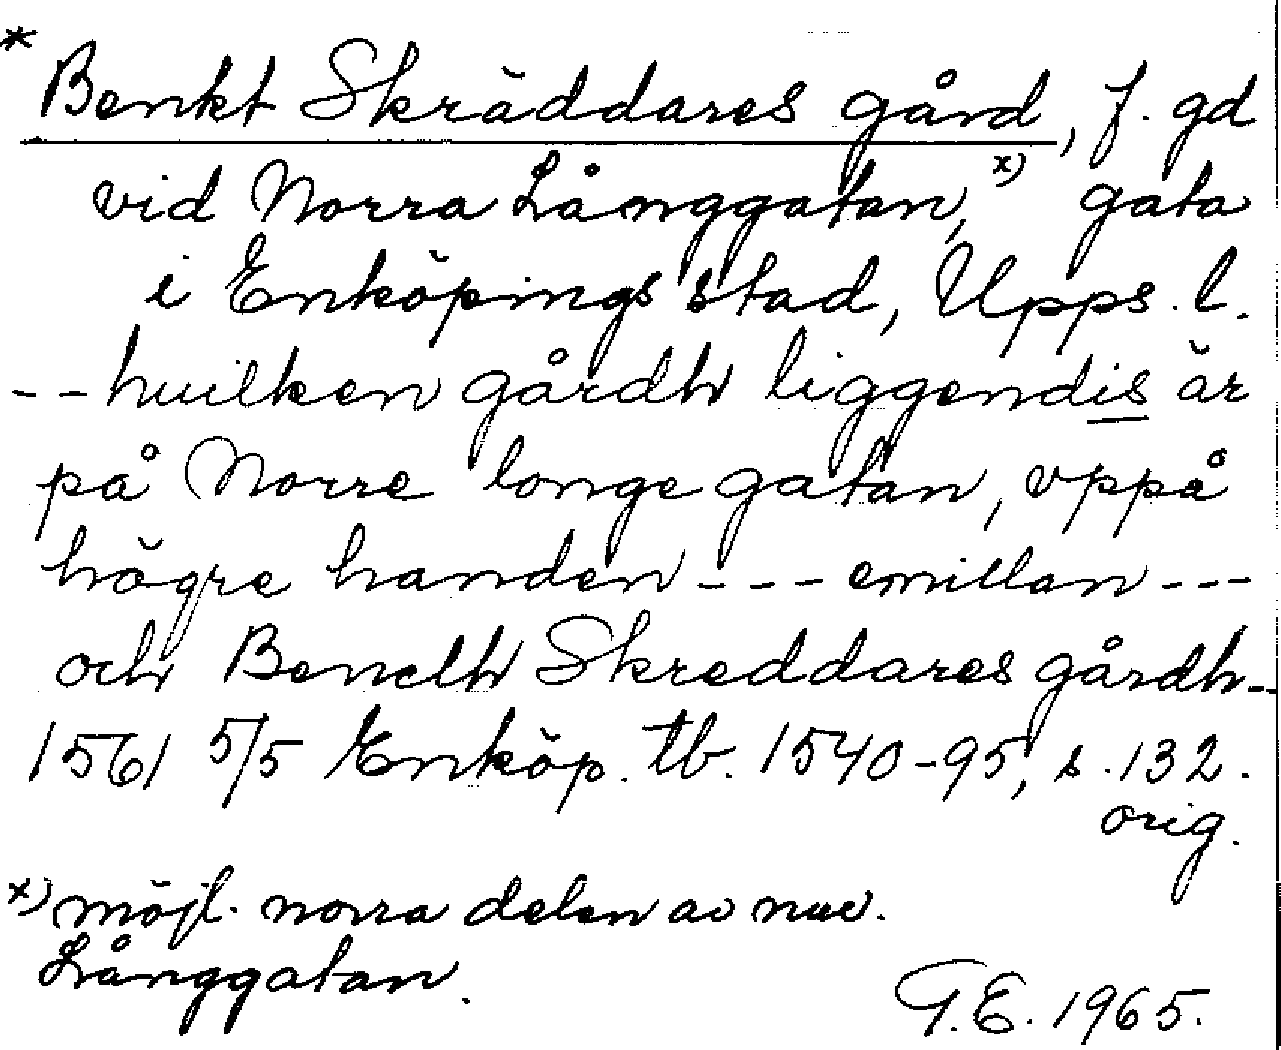 * Benkt Skräddares gård, f. gd
vid Norra Långgatan,x) gata
i Enköpings stad, Upps. l.
-- huilken gårdh liggendis är
på Norre longe gatan, vppå
högre handen --- emillan ---
och Bencth Skreddares gårdh --
1561 5/5 Enköp. tb. 1540-95, s. 132.
orig.
x) möjl. norra delen av nuv.
Långgatan.
G.E. 1965.